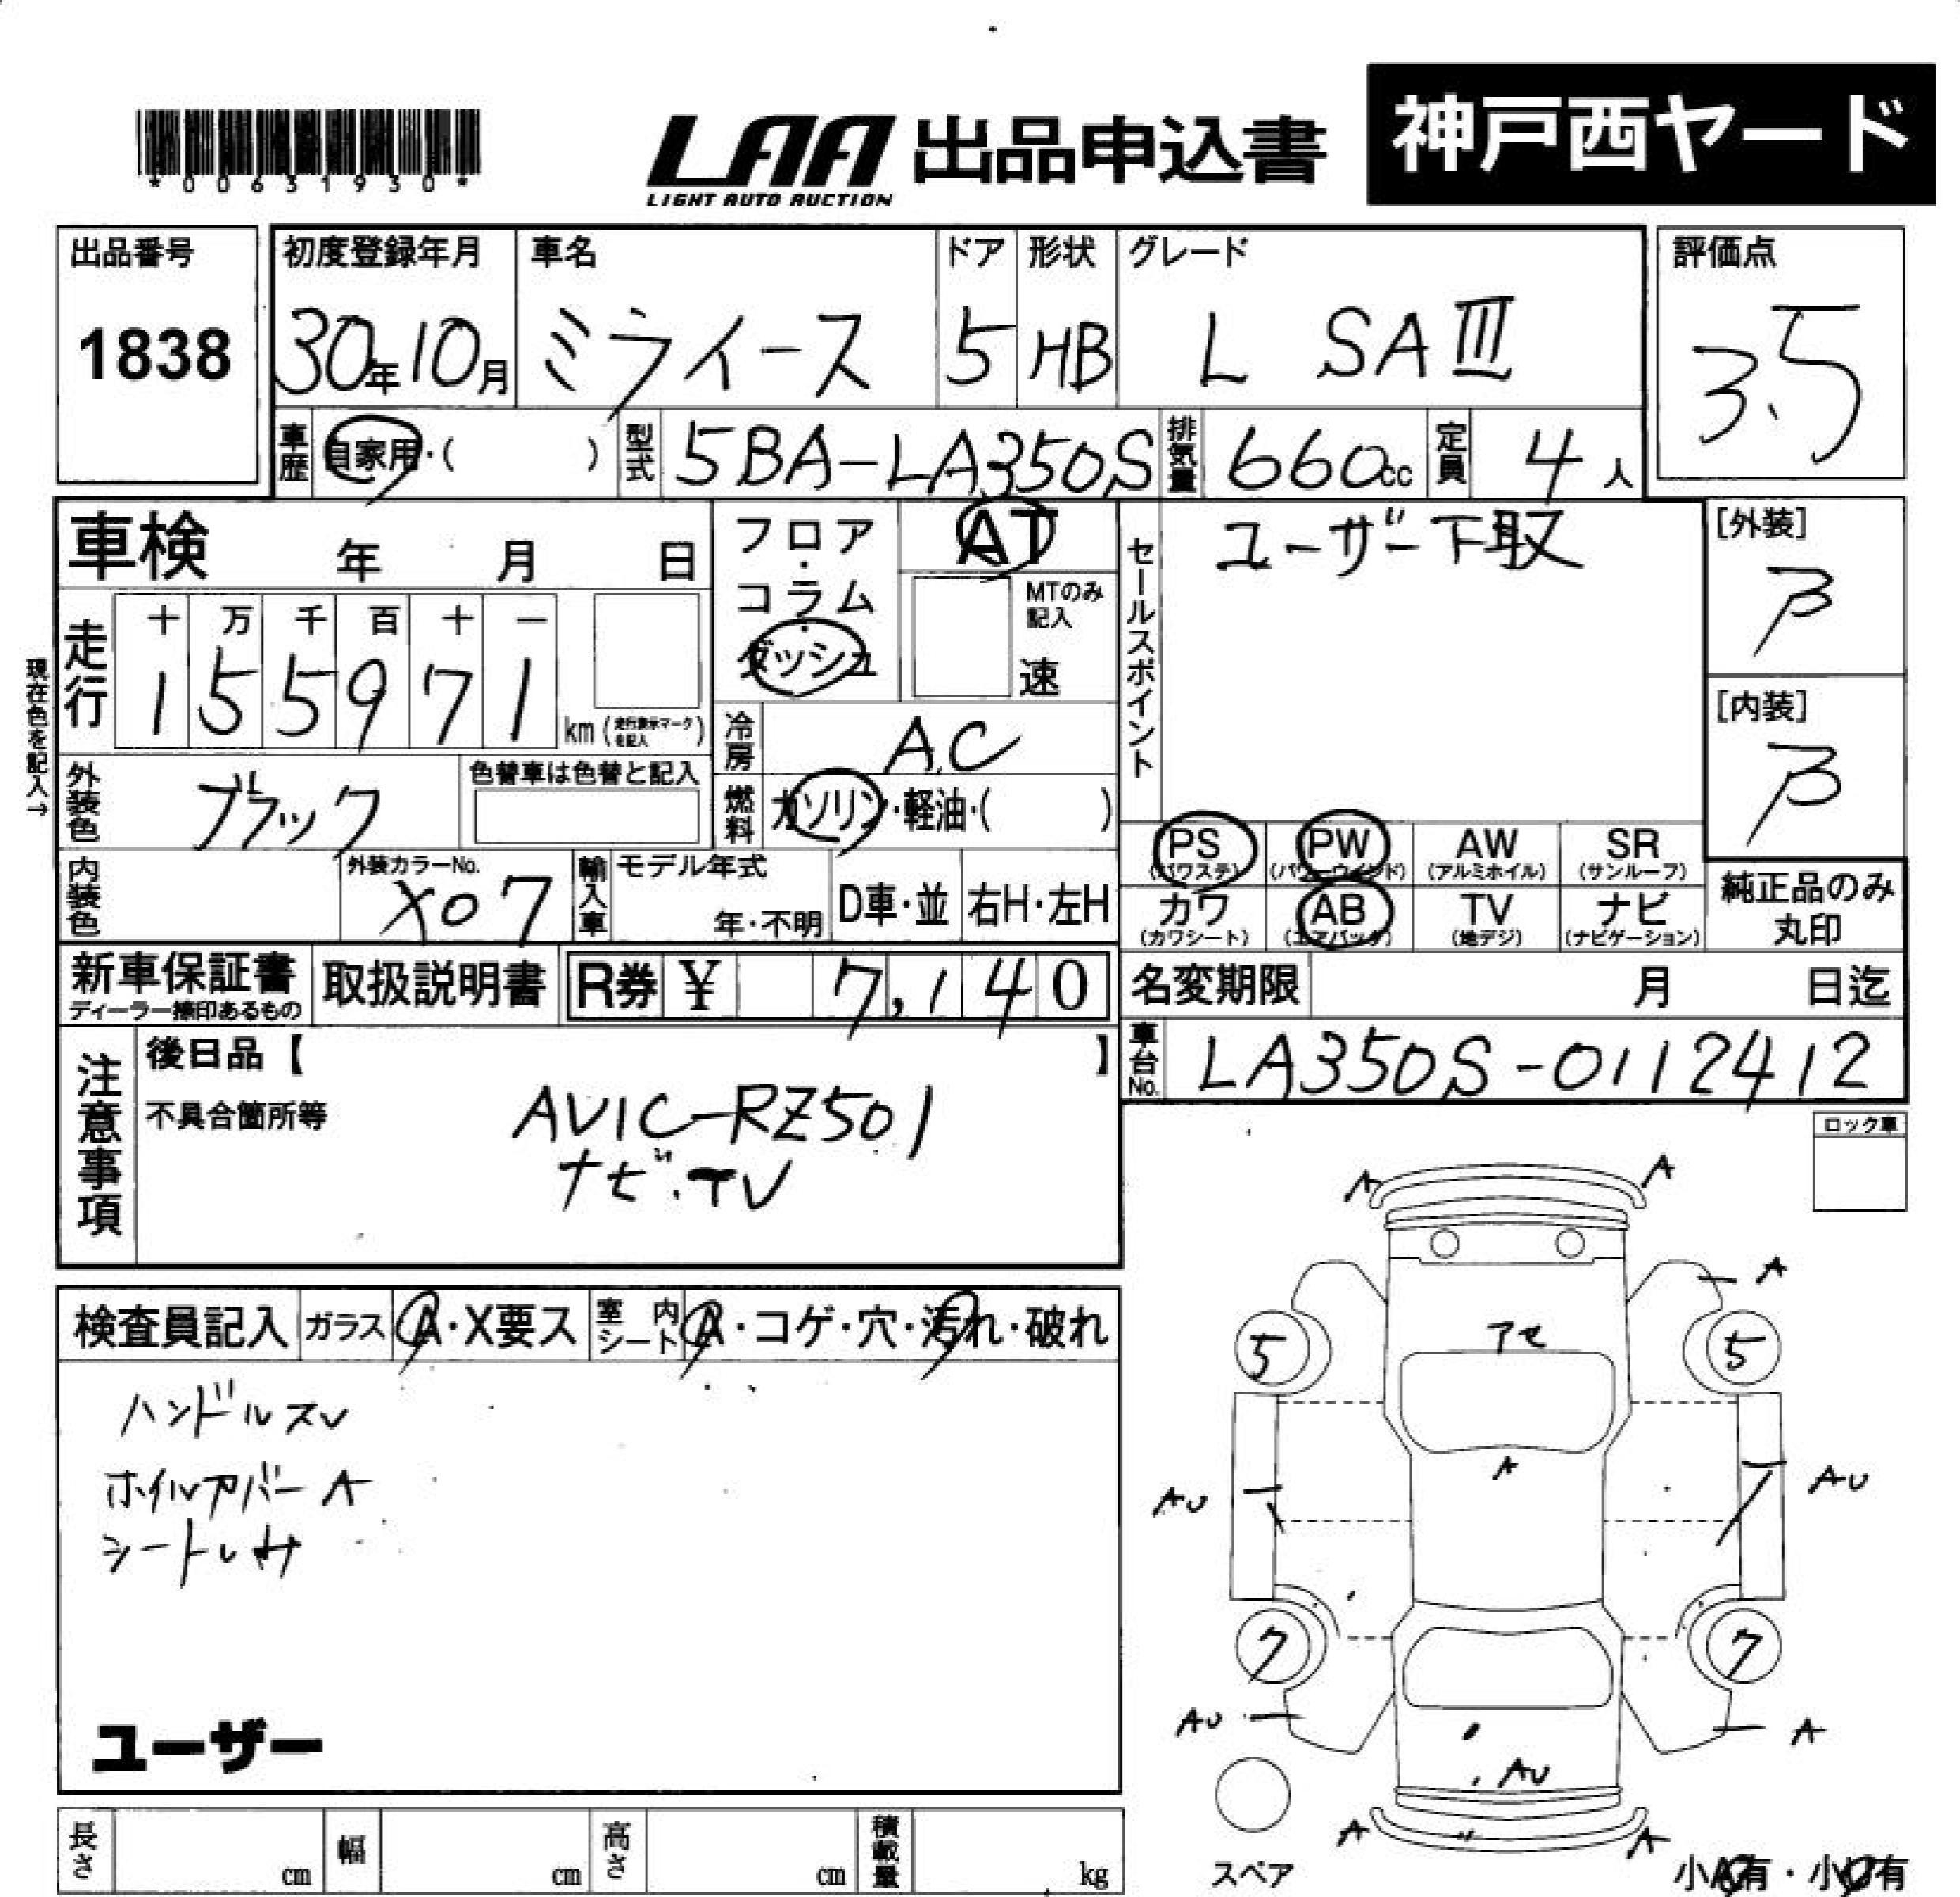 *00631930*
LAA 出品申込書
LIGHT AUTO AUCTION
神戸西ヤード
出品番号
1838
初度登録年月
30年10月
車名
ミライース
ドア
5
形状
HB
グレード
L SAⅢ
評価点
3.5
車歴
自家用・( )
型式
5BA-LA350S
排気量
660cc
定員
4人
車検 年 月 日
現在色を記入→
走行
十 万 千 百 十 一
1 5 5 9 7 1
km (走行表示マークを記入)
フロア・コラム・ダッシュ
AT
MTのみ記入
速
冷房
AC
燃料
ガソリン・軽油・( )
セールスポイント
ユーザー下取
[外装]
B
[内装]
B
外装色
ブラック
色替車は色替と記入
内装色
外装カラーNo.
X07
輸入車
モデル年式
年・不明
D車・並
右H・左H
PS (パワステ)
PW (パワーウインド)
AW (アルミホイル)
SR (サンルーフ)
カワ (カワシート)
AB (エアバック)
TV (地デジ)
ナビ (ナビゲーション)
純正品のみ丸印
新車保証書
ディーラー捺印あるもの
取扱説明書
R券 ¥ 7,140
名変期限 月 日迄
車台No.
LA350S-0112412
注意事項
後日品【 】
不具合箇所等
AVIC-RZ501
ナビ.TV
ロック車
検査員記入
ガラス
A・X要ス
室内シート
A・コゲ・穴・汚れ・破れ
ハンドルスレ
ホイルカバーA
ユーザー
A A
A
アセ
5 5
A
AU AU
7 7
AU A
AU
A A
スペア
小A有・小U有
長さ cm
幅 cm
高さ cm
積載量 kg